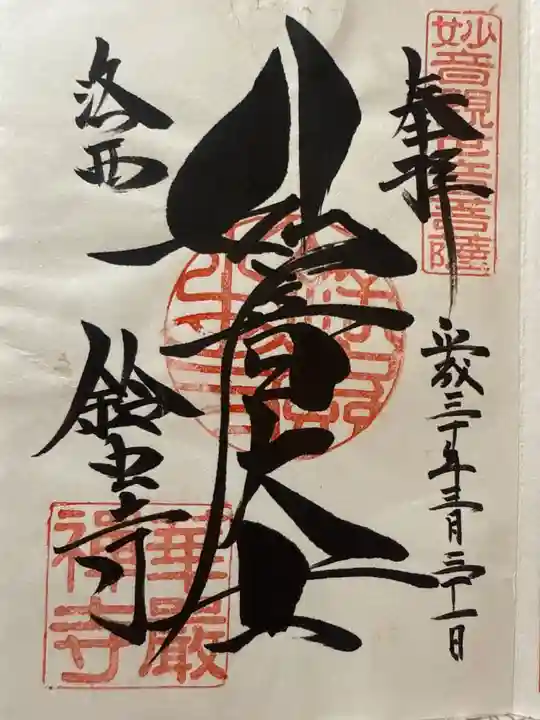 妙音観世音菩薩
奉拝
平成三十年三月三十一日
妙音大士
洛西
鈴虫寺
華嚴
禅寺